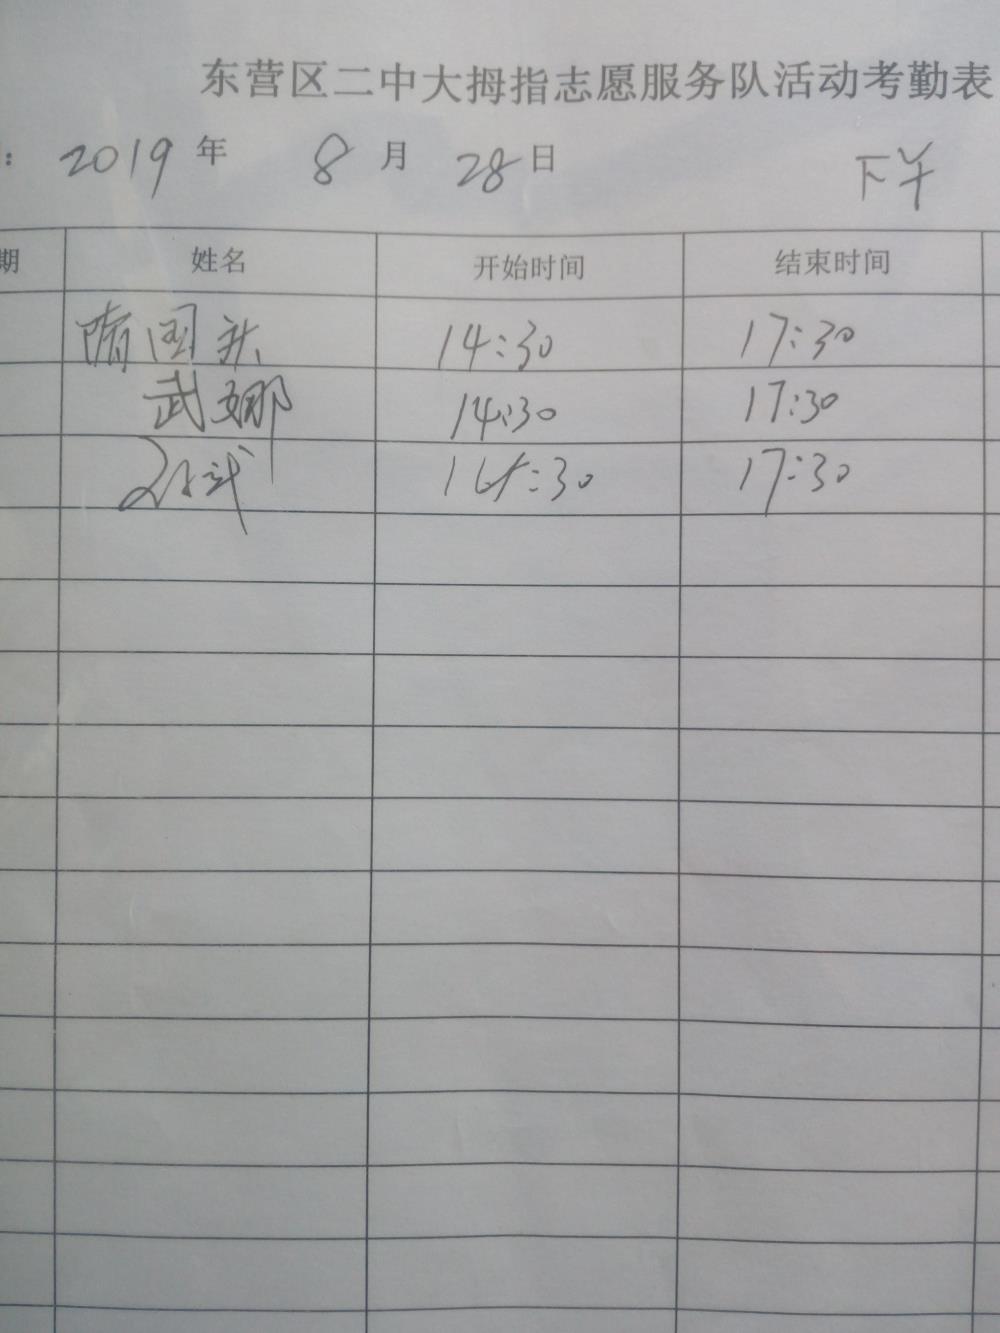 东营区二中大拇指志愿服务队活动考勤表
: 2019 年 8 月 28 日 下午
期 姓名 开始时间 结束时间
隋国 14:30 17:30
武娜 14:30 17:30
武 :30 17:30